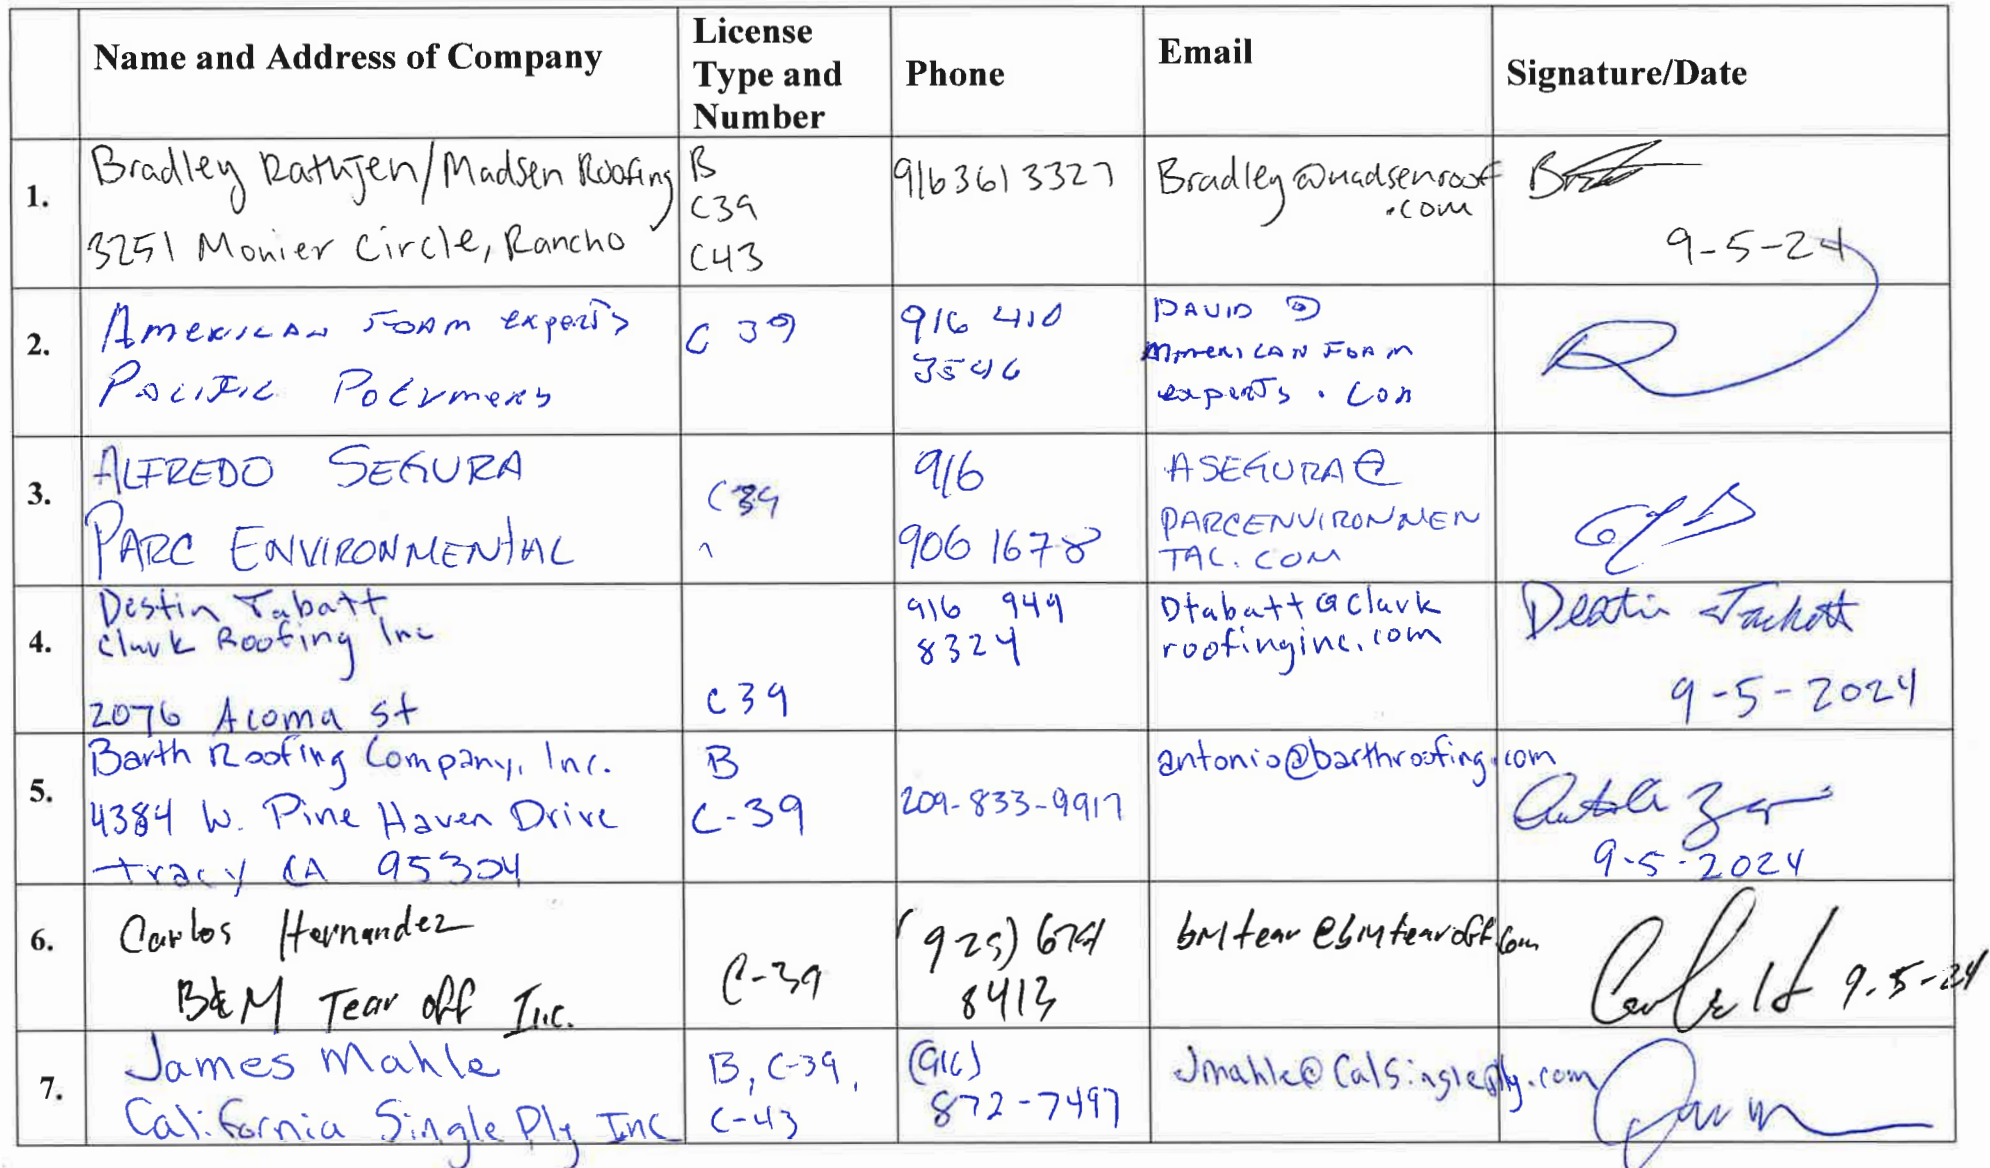 Name and Address of Company
License
Type and
Number
Phone
Email
Signature/Date
1.
Bradley Rathjen/Madsen Roofing
3251 Monier Circle, Rancho
B
C39
C43
916 361 3327
Bradley@madsenroof
.com
9-5-24
2.
American Foam experts
Pacific Polymers
C 39
916 410
3546
DAVID @
AMERICAN FOAM
experts . com
3.
ALFREDO SEGURA
PARC ENVIRONMENTAL
C39
916
906 1678
ASEGURA@
PARCENVIRONMEN
TAL.COM
4.
Destin Tabatt
Clark Roofing Inc
2076 Acoma st
C39
916 949
8324
Dtabatt@Clark
roofinginc.com
9-5-2024
5.
Barth Roofing Company, Inc.
4384 W. Pine Haven Drive
Tracy CA 95304
B
C-39
209-833-9917
antonio@barthroofing.com
9-5-2024
6.
Carlos Hernandez
B&M Tear off Inc.
C-39
(925) 674
8413
bmtear@bmtearoff.com
9-5-24
7.
James Mahle
California Single Ply Inc
B, C-39,
C-43
(916)
872-7497
Jmahle@CalSingleply.com